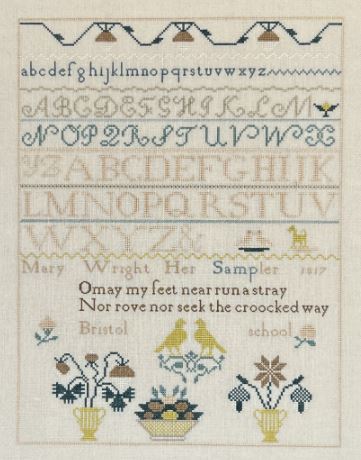 abcdefghijklmnopqrstuvwxyz
ABCDEFGHIJKLM
NOPQRSTUVWX
YZABCDEFGHIJK
LMNOPQRSTUV
WXYZ&
Mary Wright Her Sampler 1817
O may my feet near run a stray
Nor rove nor seek the croocked way
Bristol school